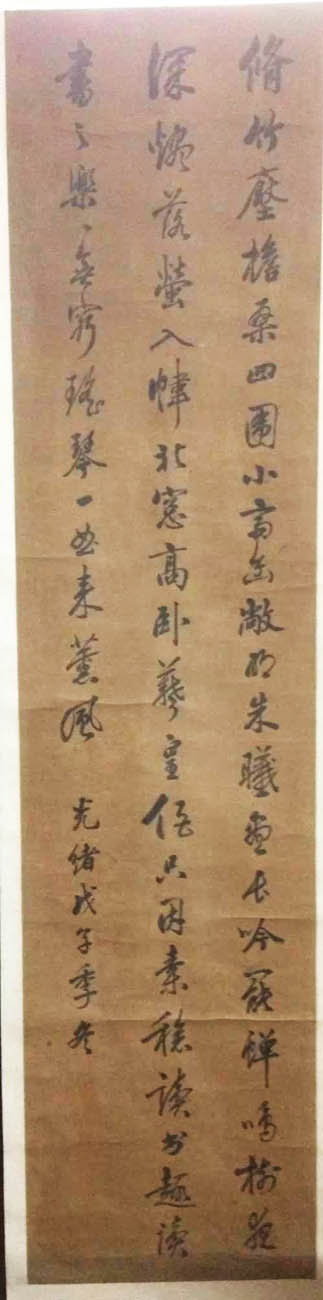 脩竹壓檐桑四圍小齋幽敞明朱曦晝長吟罷蟬鳴樹夜
深燼落螢入幃北窓高卧羲皇侣只因素稔讀书趣讀
書之樂樂無窮瑤琴一曲来薰風
光緒戊子季冬